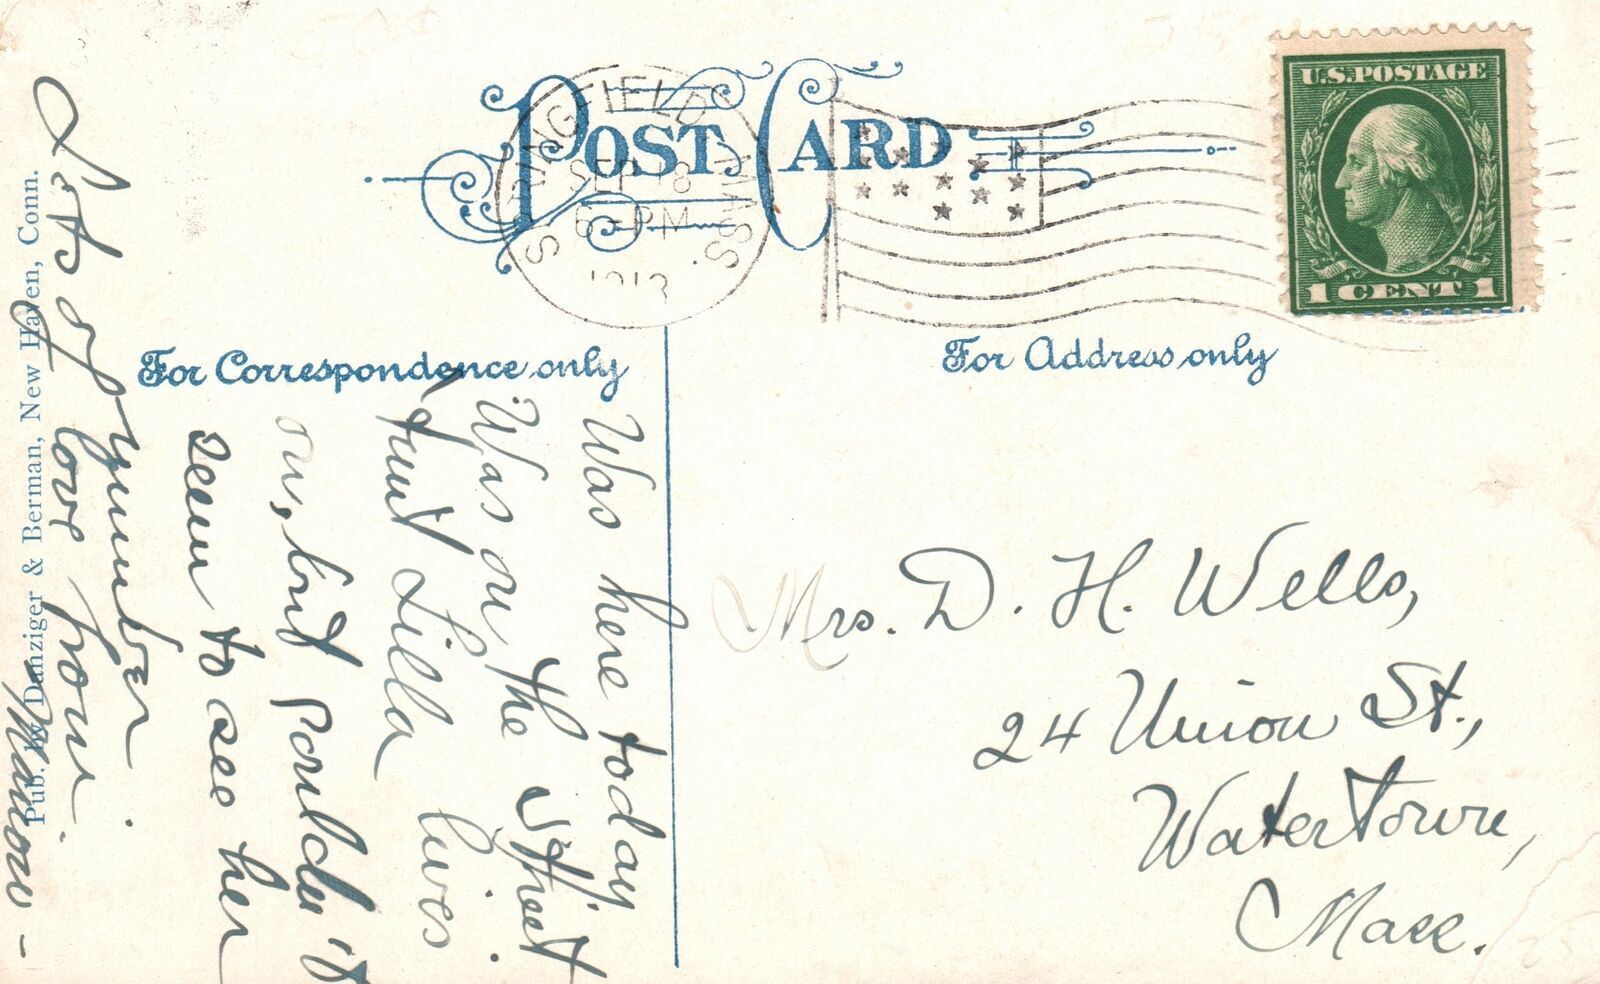 POST CARD
SPRINGFIELD MASS.
SEP 18
6-PM
1913
U.S. POSTAGE
1 CENT 1
For Correspondence only
For Address only
Was here today
Was on the Street
Aunt Lilla lives
on, but couldn't
seem to see her
number
love from
Marion-
Mrs. D. H. Wells,
24 Union St.,
Watertown,
Mass.
Pub. by Danziger & Berman, New Haven, Conn.